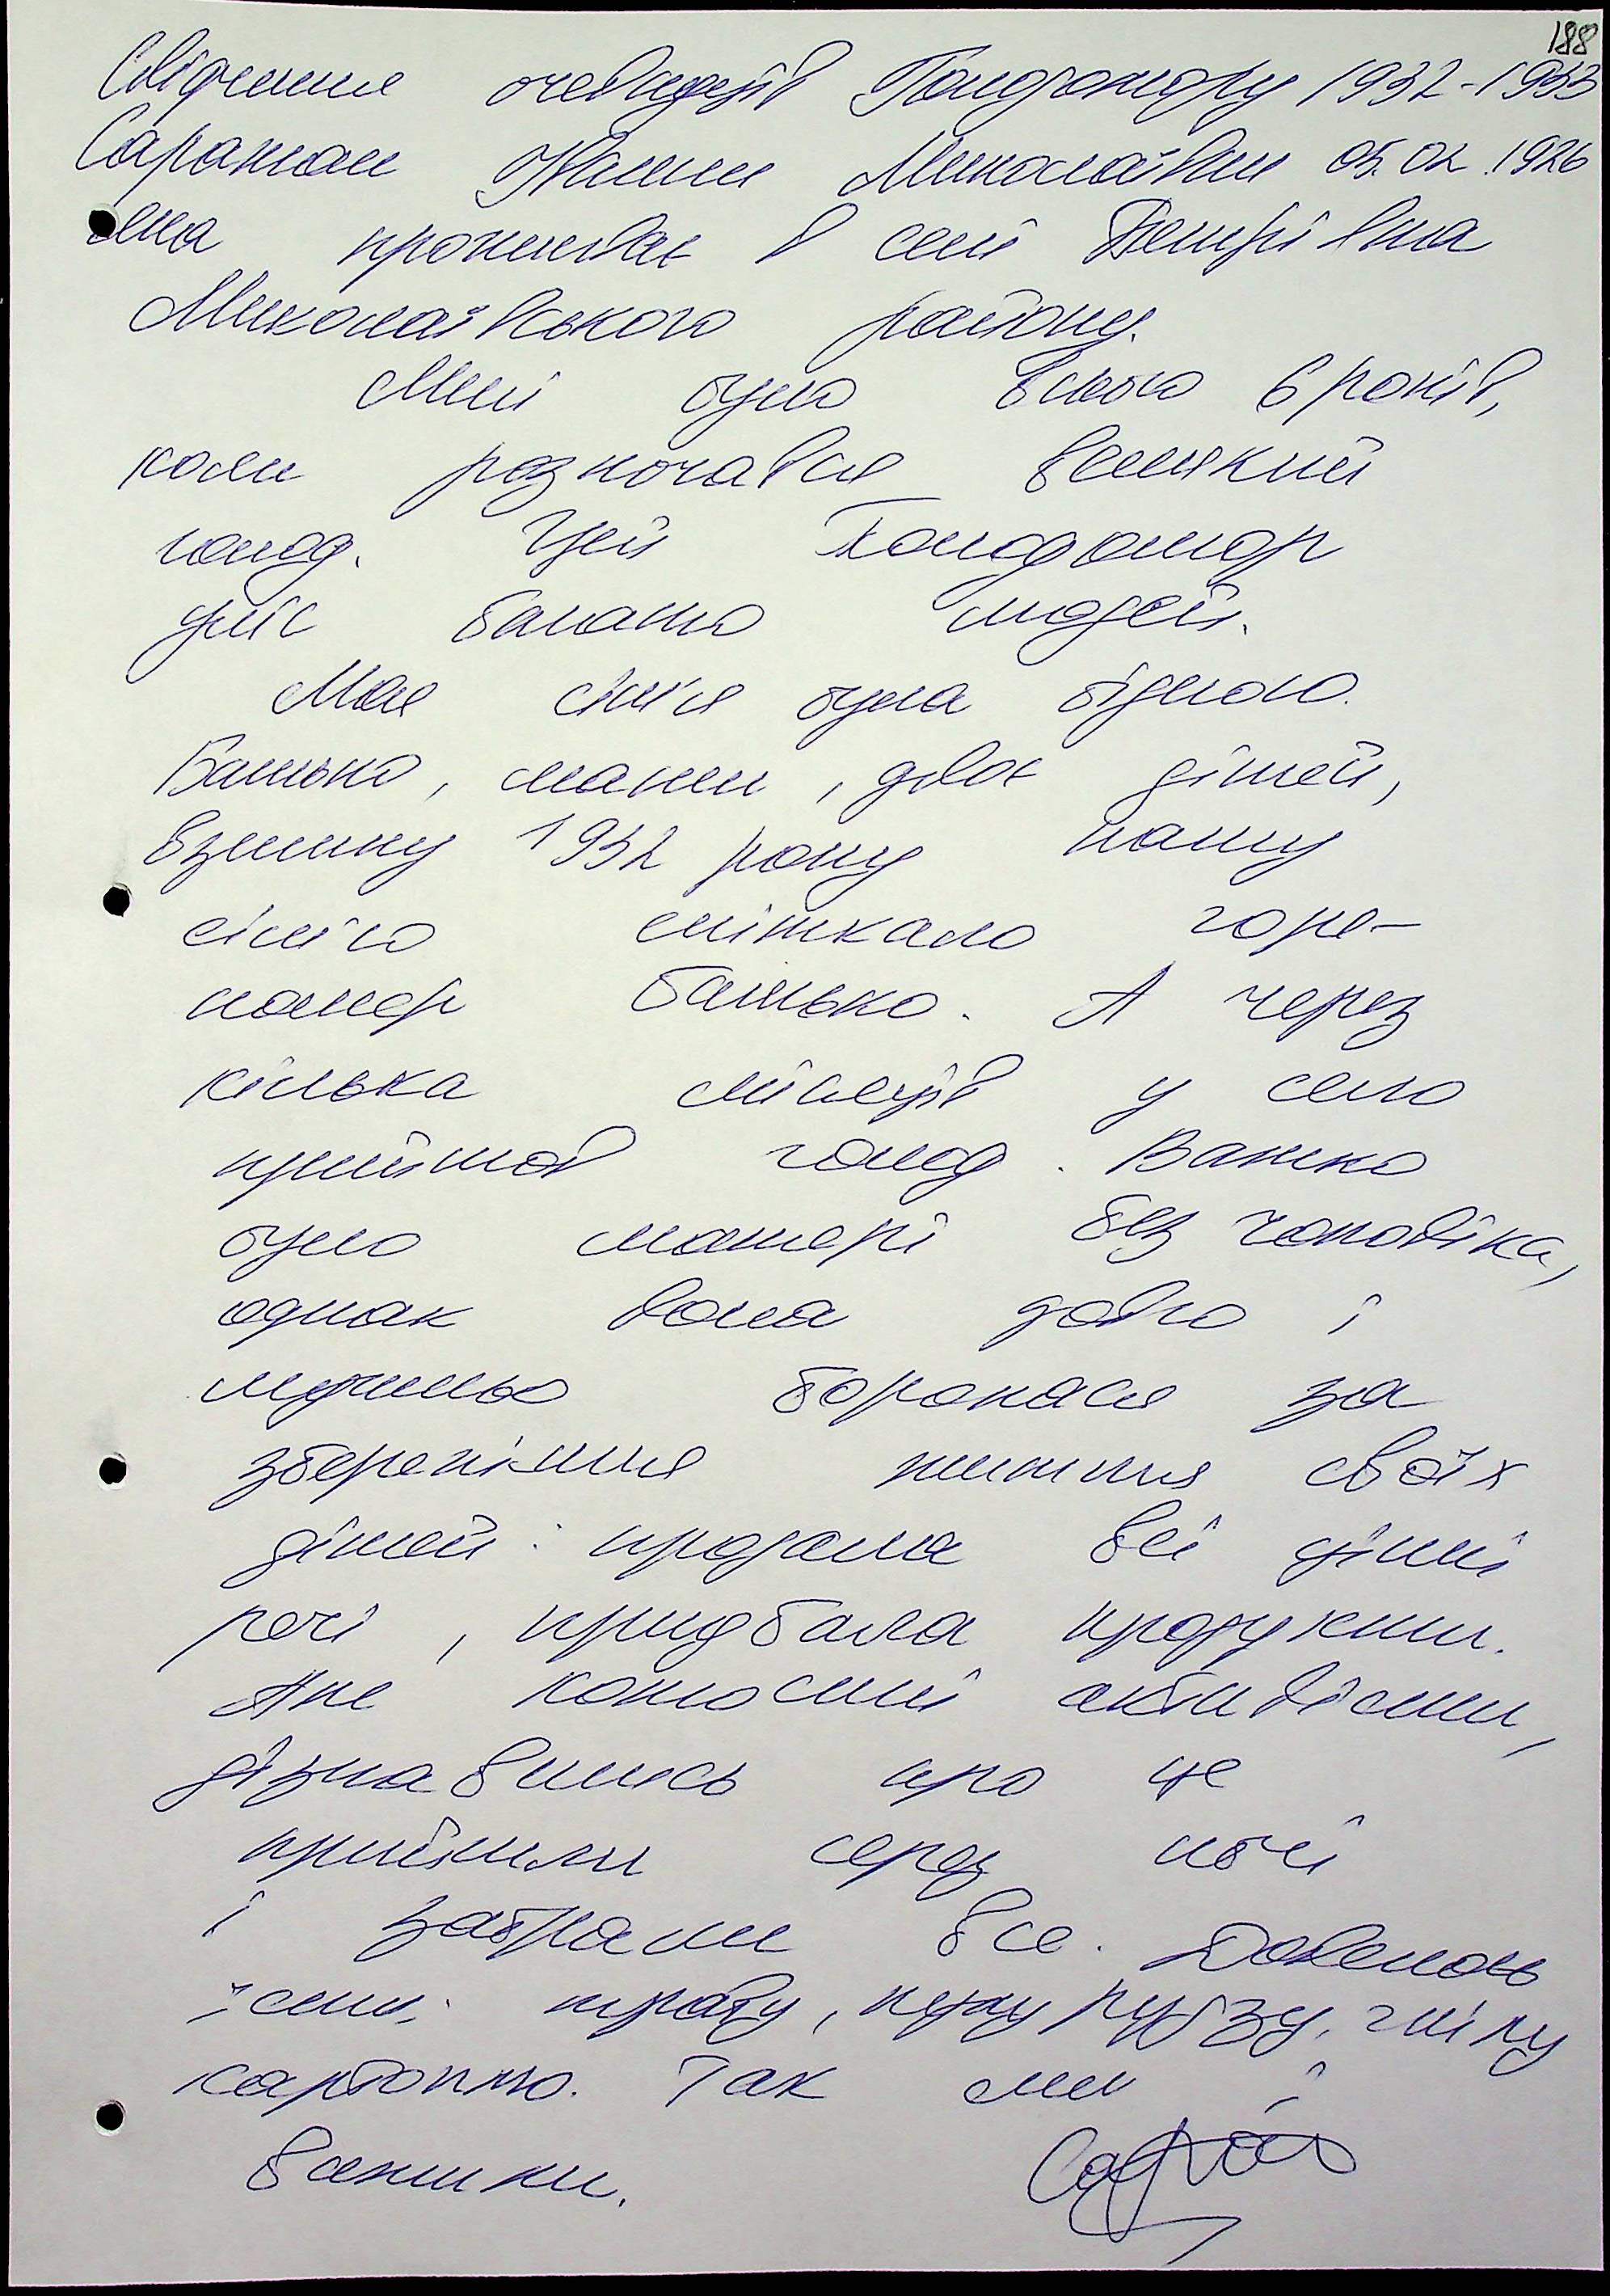 188
Свідчення очевидців Голодомору 1932-1933
Сарамман Ганни Миколаївни 05.02.1926
яка проживає в селі Петрівка
Миколаївського району.
Мені було всього 6 років,
коли розпочався великий
голод. Цей Голодомор
уніс багато людей.
Моя сім'я була бідною.
Батько, мати, двоє дітей,
взимку 1932 року нашу
сім'ю спіткало горе-
помер батько. А через
кілька місяців у село
прийшов голод. Важко
було матері без чоловіка,
однак вона довго і
мужньо боролася за
збереження життя своїх
дітей: продала всі цінні
речі, придбала продукти.
Але комосмлі активісти,
дізнавшись про це
прийшли серед ночі
і забрали все. Довелось
їсти: траву, кукурудзу, гнілу
картоплю. Так ми і
вижили.